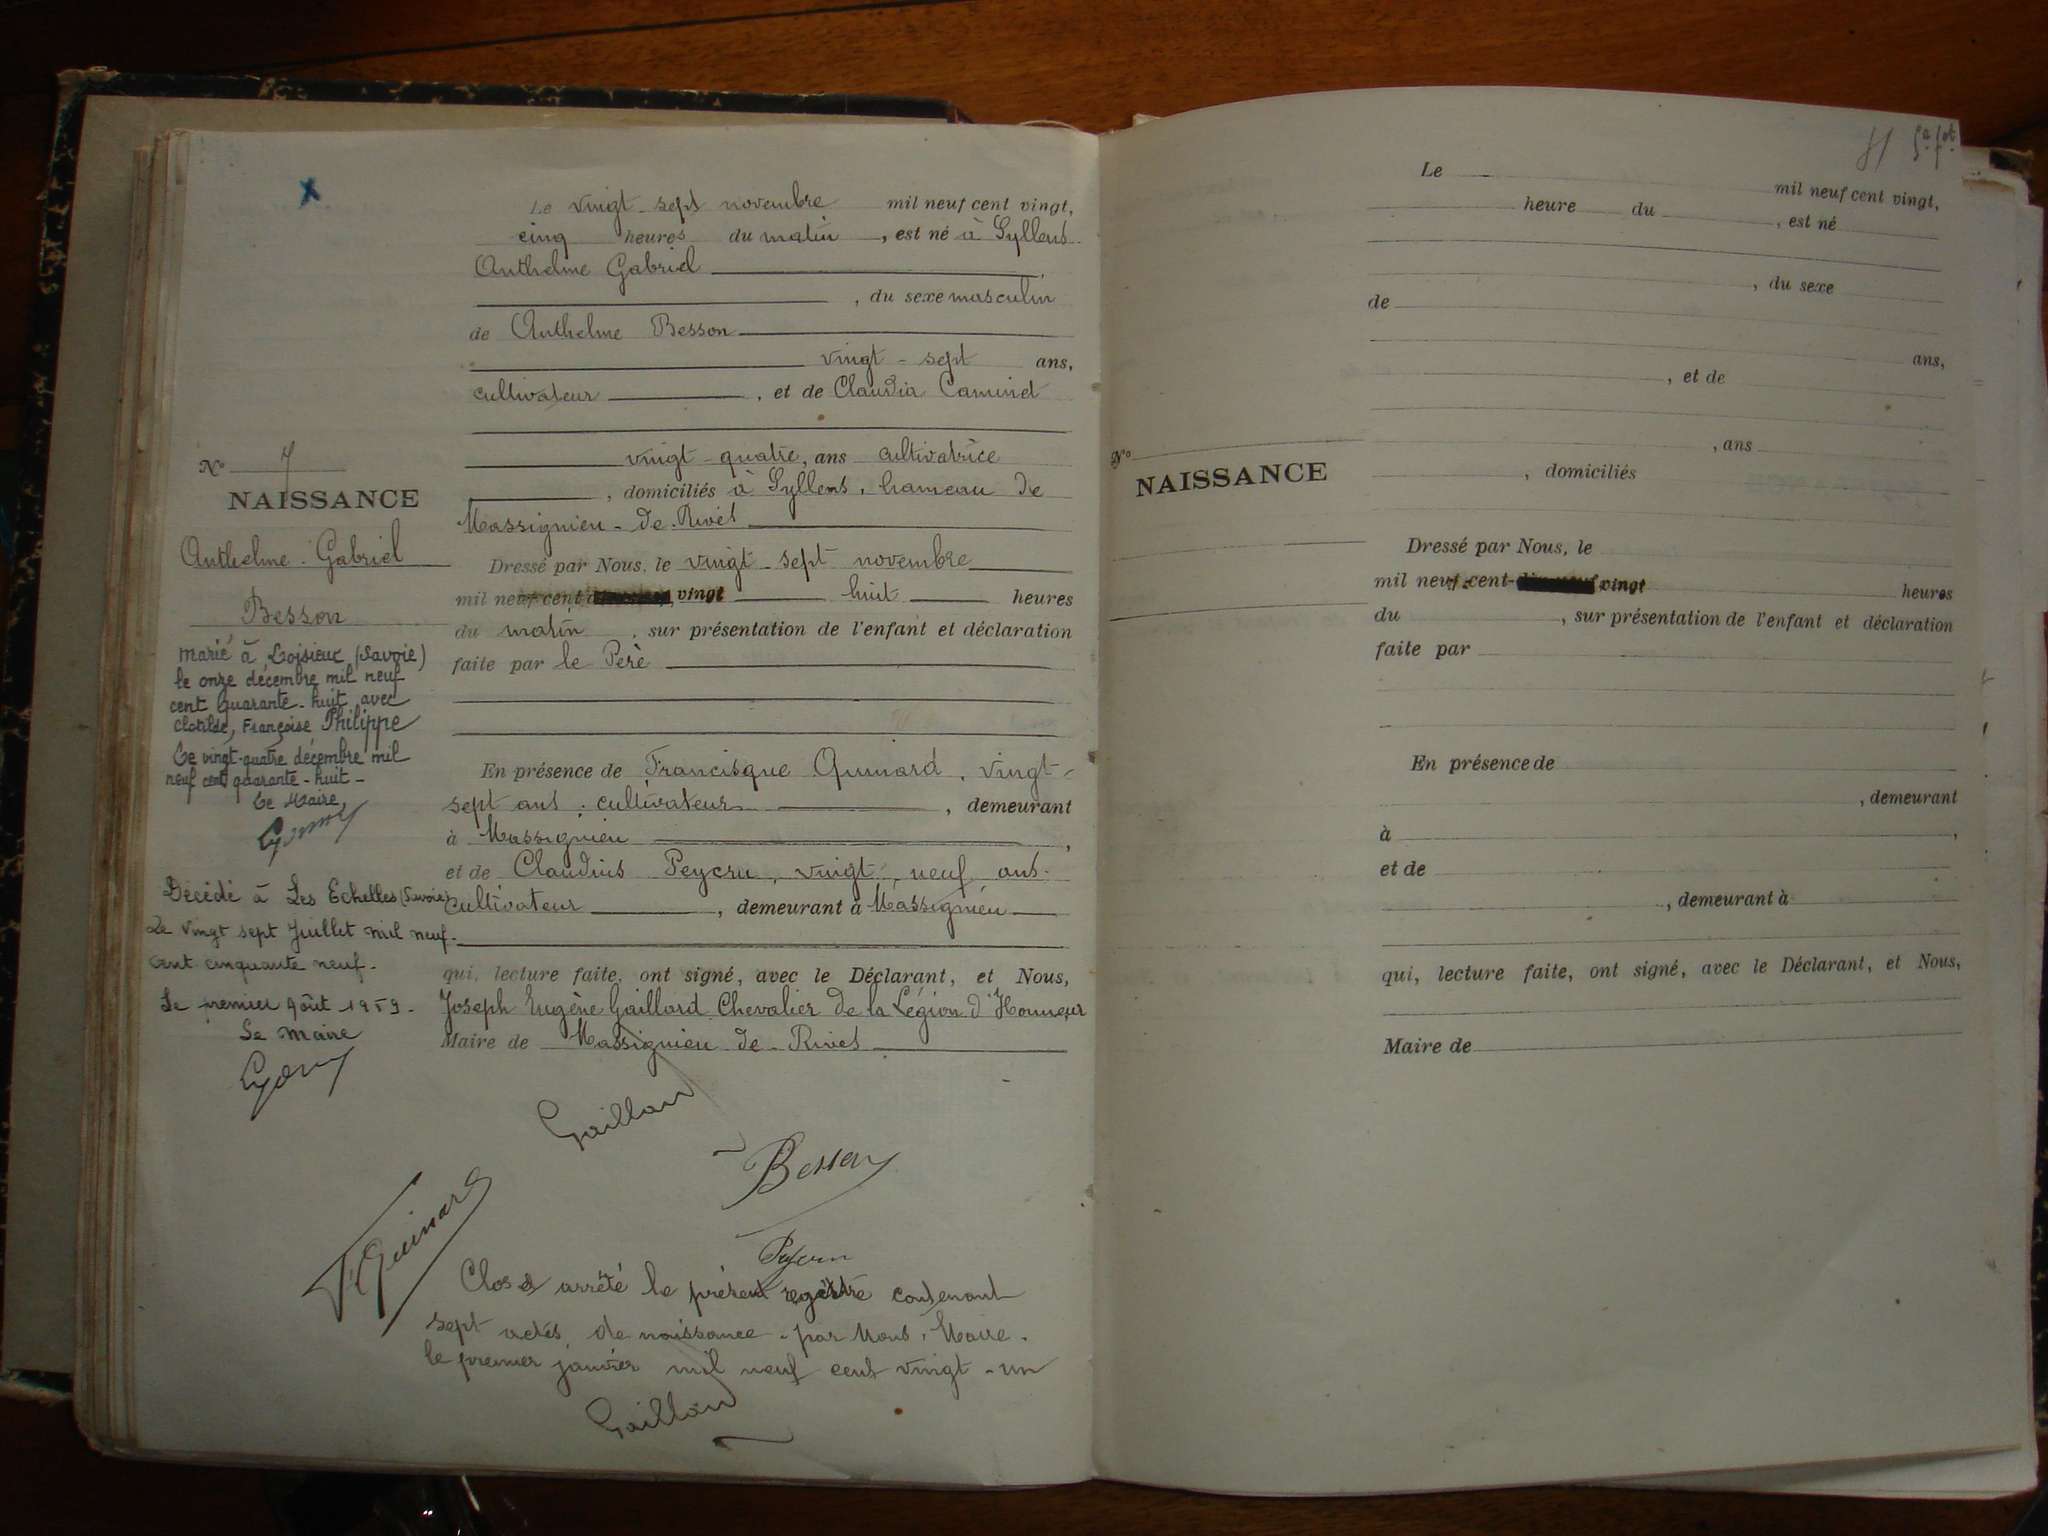 Le vingt-sept novembre mil neuf cent vingt,
cinq heures du matin, est né à Syllens
Anthelme Gabriel
, du sexe masculin
de Anthelme Besson
vingt-sept ans,
cultivateur, et de Claudia Caminet
vingt-quatre, ans cultivatrice
, domiciliés à Syllens, hameau de
Massignieu-de-Rives
Dressé par Nous, le vingt-sept novembre
mil neuf cent vingt huit heures
du matin, sur présentation de l'enfant et déclaration
faite par le Père
En présence de Francisque Guinard, vingt-
sept ans, cultivateur, demeurant
à Massignieu,
et de Claudius Peycru, vingt-neuf ans.
cultivateur, demeurant à Massignieu
qui, lecture faite, ont signé, avec le Déclarant, et Nous,
Joseph Eugène Gaillard Chevalier de la Légion d'Honneur
Maire de Massignieu-de-Rives
Gaillard
Besson
F Guinard
Peycru
Clos et arrêté le présent registre contenant
sept actes de naissance par Nous, Maire.
le premier janvier mil neuf cent vingt-un
Gaillard
N° 7
NAISSANCE
Anthelme Gabriel
Besson
Marié à Loisieux (Savoie)
le onze décembre mil neuf
cent quarante-huit avec
Clotilde, Françoise Philippe
Le vingt-quatre décembre mil
neuf cent quarante-huit-
Le Maire,
Décédé à Les Echelles (Savoie)
Le vingt sept Juillet mil neuf-
cent cinquante neuf.
Le premier Août 1959.
Le Maire
81
Le mil neuf cent vingt,
heure du , est né
, du sexe
de
ans,
, et de
N°
NAISSANCE
, ans
, domiciliés
Dressé par Nous, le
mil neuf cent vingt heures
du , sur présentation de l'enfant et déclaration
faite par
En présence de
, demeurant
à ,
et de
, demeurant à
qui, lecture faite, ont signé, avec le Déclarant, et Nous,
Maire de